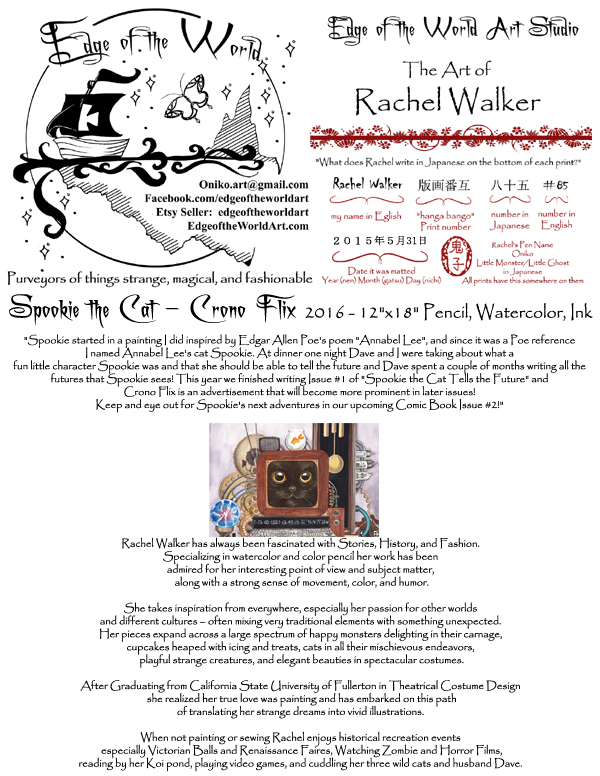 Edge of the World
Oniko.art@gmail.com
Facebook.com/edgeoftheworldart
Etsy Seller: edgeoftheworldart
EdgeoftheWorldArt.com
Purveyors of things strange, magical, and fashionable
Edge of the World Art Studio
The Art of
Rachel Walker
"What does Rachel write in Japanese on the bottom of each print?"
Rachel Walker 版画番互 八十五 #85
my name in Eglish "hanga bango" Print number number in Japanese number in English
2015年5月31日
Date it was matted
Year (nen) Month (gatsu) Day (nichi)
鬼子
Rachel's Pen Name
Oniko
Little Monster/Little Ghost
in Japanese
All prints have this somewhere on them
Spookie the Cat – Crono Flix 2016 - 12"x18" Pencil, Watercolor, Ink
"Spookie started in a painting I did inspired by Edgar Allen Poe's poem "Annabel Lee", and since it was a Poe reference
I named Annabel Lee's cat Spookie. At dinner one night Dave and I were taking about what a
fun little character Spookie was and that she should be able to tell the future and Dave spent a couple of months writing all the
futures that Spookie sees! This year we finished writing Issue #1 of "Spookie the Cat Tells the Future" and
Crono Flix is an advertisement that will become more prominent in later issues!
Keep and eye out for Spookie's next adventures in our upcoming Comic Book Issue #2!"
Rachel Walker has always been fascinated with Stories, History, and Fashion.
Specializing in watercolor and color pencil her work has been
admired for her interesting point of view and subject matter,
along with a strong sense of movement, color, and humor.
She takes inspiration from everywhere, especially her passion for other worlds
and different cultures – often mixing very traditional elements with something unexpected.
Her pieces expand across a large spectrum of happy monsters delighting in their carnage,
cupcakes heaped with icing and treats, cats in all their mischievous endeavors,
playful strange creatures, and elegant beauties in spectacular costumes.
After Graduating from California State University of Fullerton in Theatrical Costume Design
she realized her true love was painting and has embarked on this path
of translating her strange dreams into vivid illustrations.
When not painting or sewing Rachel enjoys historical recreation events
especially Victorian Balls and Renaissance Faires, Watching Zombie and Horror Films,
reading by her Koi pond, playing video games, and cuddling her three wild cats and husband Dave.